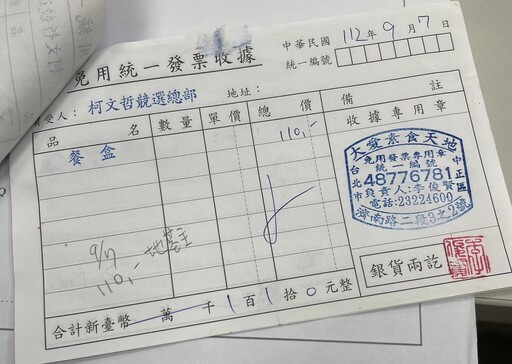 免用統一發票收據
中華民國 112 年 9 月 7 日
統一編號
受人： 柯文哲競選總部 地址：
品名 數量 單價 總價 備註
餐盒 110,-
收據專用章
大愛素食天地
免用發票專用章
統一編號
台北市 48776781 中正區
負責人：李俊賢
電話：23224600
濟南路二段3之2號
9/7
110,-
銀貨兩訖
合計新臺幣 萬 千 1 百 1 拾 0 元整